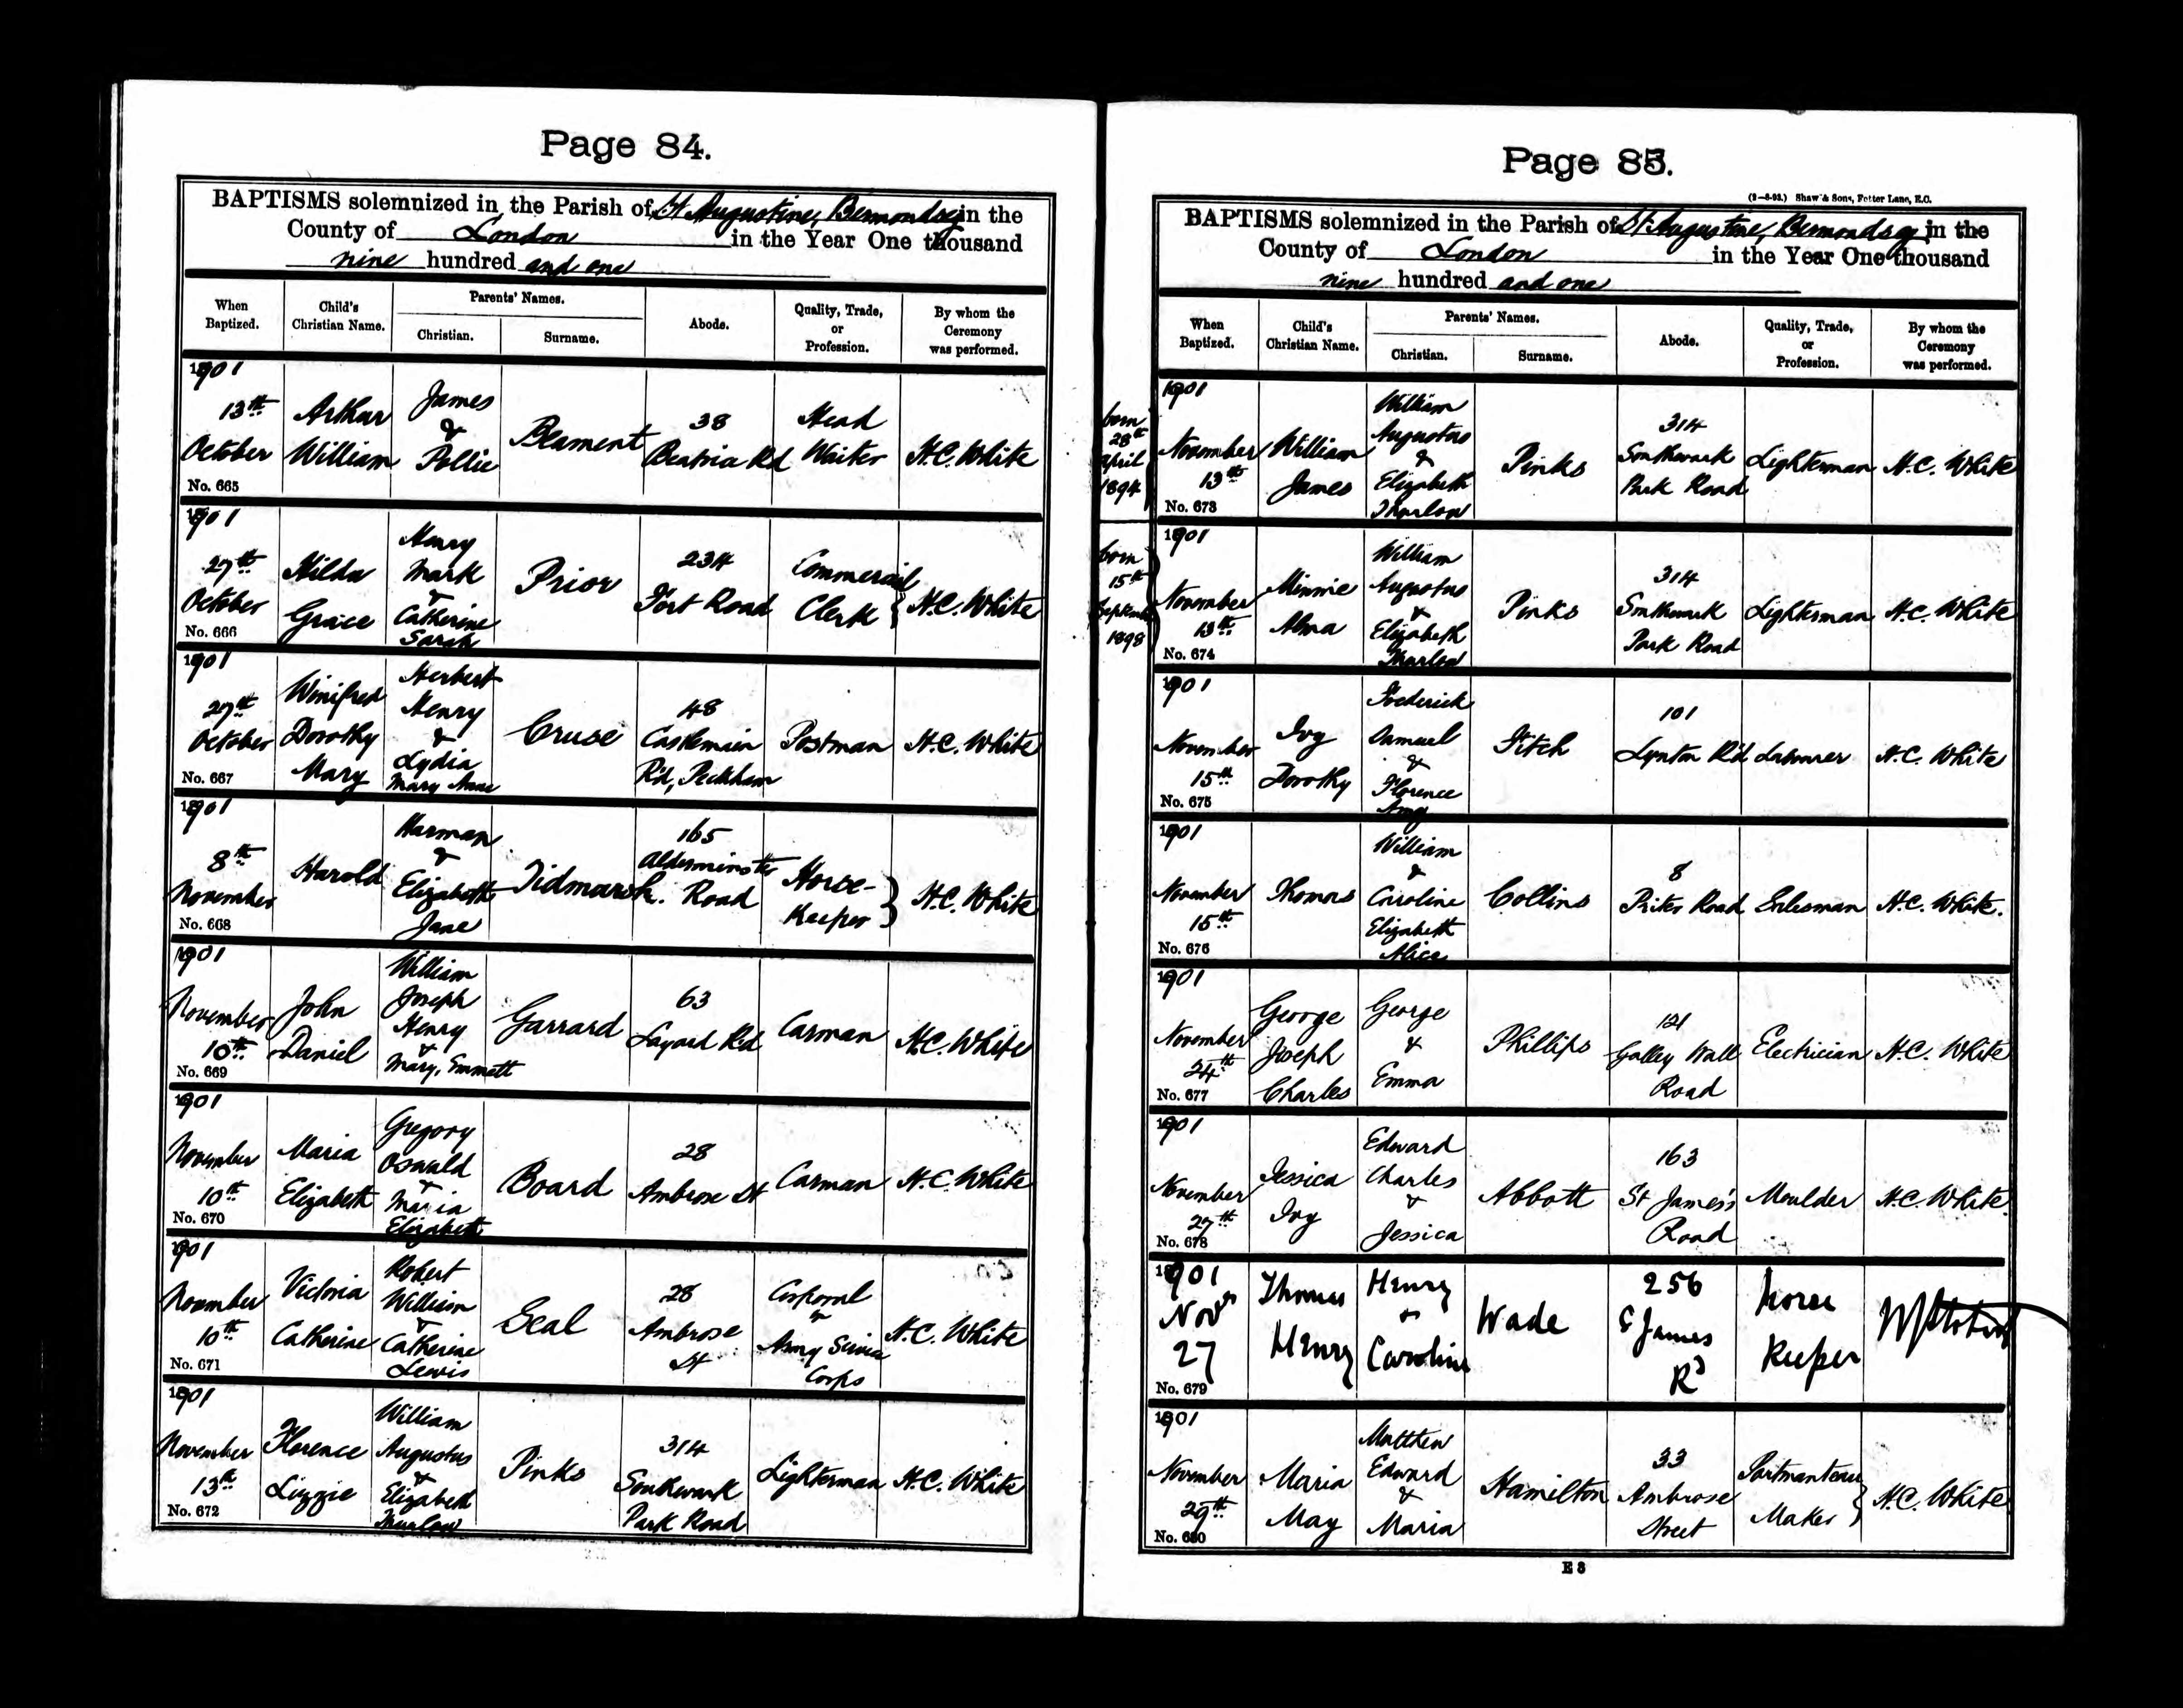 Page 84.
BAPTISMS solemnized in the Parish of St Augustine, Bermondsey in the
County of London in the Year One thousand
nine hundred and one
When Baptized.
Child's Christian Name.
Parents' Names.
Christian.
Surname.
Abode.
Quality, Trade, or Profession.
By whom the Ceremony was performed.
1901
13th October
No. 665
Arthur William
James & Pollie
Beament
38 Beatrice Rd
Head Waiter
H.C. White
1901
27th October
No. 666
Hilda Grace
Henry Mark & Catherine Sarah
Prior
234 Fort Road
Commercial Clerk
H.C. White
1901
27th October
No. 667
Winifred Dorothy Mary
Herbert Henry & Lydia Mary Anne
Cruse
48 Castlemain Rd, Peckham
Postman
H.C. White
1901
8th November
No. 668
Harold
Harman & Elizabeth Jane
Tidmarsh.
165 Alderminster Road
Horse-Keeper
H.C. White
1901
November 10th
No. 669
John Daniel
William Joseph Henry & Mary, Emmett
Garrard
63 Layard Rd
Carman
H.C. White
1901
November 10th
No. 670
Maria Elizabeth
Gregory Oswald & Maria Elizabeth
Board
28 Ambrose St
Carman
H.C. White
1901
November 10th
No. 671
Victoria Catherine
Robert William & Catherine Lewis
Seal
28 Ambrose St
Corporal in Army Service Corps
H.C. White
1901
November 13th
No. 672
Florence Lizzie
William Augustus & Elizabeth Thurlow
Pinks
314 Southwark Park Road
Lighterman
H.C. White
Page 85.
(2—8-93.) Shaw & Sons, Fetter Lane, E.C.
BAPTISMS solemnized in the Parish of St Augustine, Bermondsey in the
County of London in the Year One thousand
nine hundred and one
When Baptized.
Child's Christian Name.
Parents' Names.
Christian.
Surname.
Abode.
Quality, Trade, or Profession.
By whom the Ceremony was performed.
born 28th April 1894
1901
November 13th
No. 673
William James
William Augustus & Elizabeth Thurlow
Pinks
314 Southwark Park Road
Lighterman
H.C. White
born 15th September 1898
1901
November 13th
No. 674
Minnie Alma
William Augustus & Elizabeth Thurlow
Pinks
314 Southwark Park Road
Lighterman
H.C. White
1901
November 15th
No. 675
Ivy Dorothy
Frederick Samuel & Florence Amy
Fitch
101 Lynton Rd
Labourer
H.C. White
1901
November 15th
No. 676
Thomas
William & Caroline Elizabeth Alice
Collins
8 Road
Salesman
H.C. White.
1901
November 24th
No. 677
George Joseph Charles
George & Emma
Phillips
121 Galley Wall Road
Electrician
H.C. White
1901
November 27th
No. 678
Jessica Ivy
Edward Charles & Jessica
Abbott
163 St James's Road
Moulder
H.C. White.
1901
Novr 27
No. 679
Thomas Henry
Henry & Caroline
Wade
256 St James Rd
horse Keeper
1901
November 29th
No. 680
Maria May
Matthew Edward & Maria
Hamilton
33 Ambrose Street
Portmanteau Maker
H.C. White
E 3